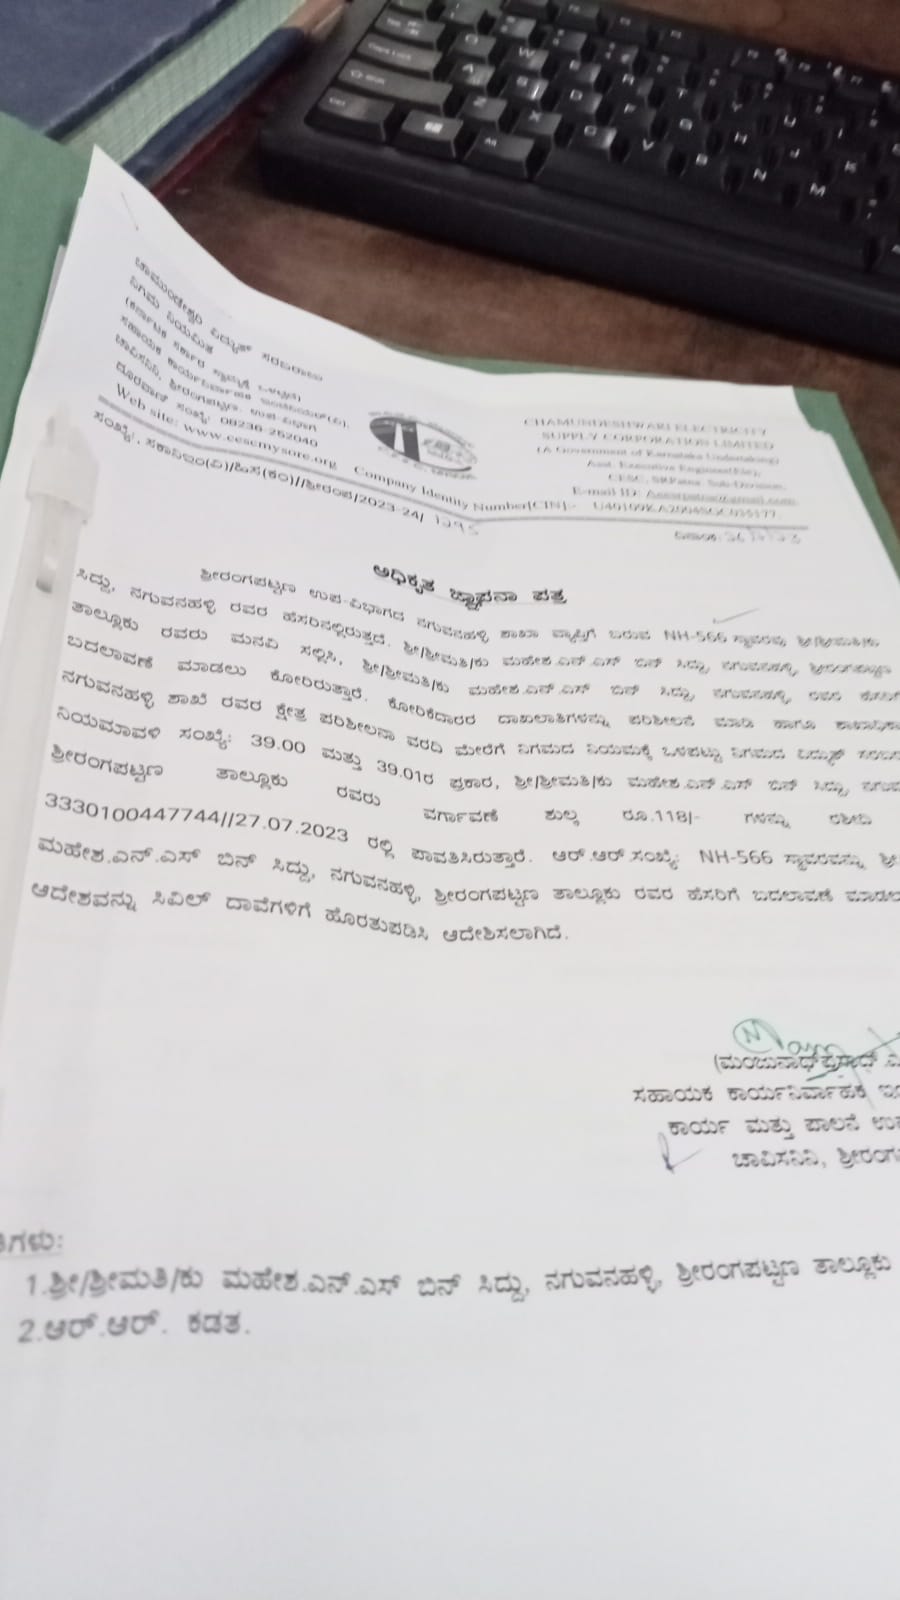 ಚಾಮುಂಡೇಶ್ವರಿ ವಿದ್ಯುತ್ ಸರಬರಾಜು
ನಿಗಮ ನಿಯಮಿತ
(ಕರ್ನಾಟಕ ಸರ್ಕಾರ ಸ್ವಾಮ್ಯಕ್ಕೆ ಒಳಪಟ್ಟಿದೆ)
ಸಹಾಯಕ ಕಾರ್ಯನಿರ್ವಾಹಕ ಇಂಜಿನಿಯರ್(ವಿ),
ಚಾವಿಸನಿನಿ, ಶ್ರೀರಂಗಪಟ್ಟಣ. ಉಪ-ವಿಭಾಗ
ದೂರವಾಣಿ ಸಂಖ್ಯೆ: 08236-252040
Web site: www.cescmysore.org
CHAMUNDESHWARI ELECTRICITY
SUPPLY CORPORATION LIMITED
(A Government of Karnataka Undertaking)
Asst. Executive Engineer(Ele),
CESC, SRPatna. Sub-Division,
E-mail ID:
Company Identity Number[CIN]:- U40109KA2004SGC035177
ಸಂಖ್ಯೆ: ಸಕಾನಿಇಂ(ವಿ)/ಹಿಸ(ಕಂ)//ಶ್ರೀರಂಪ/2023-24/ 1295
ದಿನಾಂಕ:
ಅಧಿಕೃತ ಜ್ಞಾಪನಾ ಪತ್ರ
ಶ್ರೀರಂಗಪಟ್ಟಣ ಉಪ-ವಿಭಾಗದ ನಗುವನಹಳ್ಳಿ ಶಾಖಾ ವ್ಯಾಪ್ತಿಗೆ ಬರುವ NH-566 ಸ್ಥಾವರವು ಶ್ರೀ/ಶ್ರೀಮತಿ/ಕು
ಸಿದ್ದು, ನಗುವನಹಳ್ಳಿ ರವರ ಹೆಸರಿನಲ್ಲಿರುತ್ತದೆ. ಶ್ರೀ/ಶ್ರೀಮತಿ/ಕು ಮಹೇಶ.ಎನ್.ಎಸ್ ಬಿನ್ ಸಿದ್ದು, ನಗುವನಹಳ್ಳಿ, ಶ್ರೀರಂಗಪಟ್ಟಣ
ತಾಲ್ಲೂಕು ರವರು ಮನವಿ ಸಲ್ಲಿಸಿ, ಶ್ರೀ/ಶ್ರೀಮತಿ/ಕು ಮಹೇಶ.ಎನ್.ಎಸ್ ಬಿನ್ ಸಿದ್ದು, ನಗುವನಹಳ್ಳಿ ರವರ
ಬದಲಾವಣೆ ಮಾಡಲು ಕೋರಿರುತ್ತಾರೆ. ಕೋರಿಕೆದಾರರ ದಾಖಲಾತಿಗಳನ್ನು ಪರಿಶೀಲನೆ ಮಾಡಿ ಹಾಗೂ
ನಗುವನಹಳ್ಳಿ ಶಾಖೆ ರವರ ಕ್ಷೇತ್ರ ಪರಿಶೀಲನಾ ವರದಿ ಮೇರೆಗೆ ನಿಗಮದ ನಿಯಮಕ್ಕೆ ಒಳಪಟ್ಟು ನಿಗಮದ ವಿದ್ಯುತ್
ನಿಯಮಾವಳಿ ಸಂಖ್ಯೆ: 39.00 ಮತ್ತು 39.01ರ ಪ್ರಕಾರ, ಶ್ರೀ/ಶ್ರೀಮತಿ/ಕು ಮಹೇಶ.ಎನ್.ಎಸ್ ಬಿನ್ ಸಿದ್ದು,
ಶ್ರೀರಂಗಪಟ್ಟಣ ತಾಲ್ಲೂಕು ರವರು ವರ್ಗಾವಣೆ ಶುಲ್ಕ ರೂ.118/- ಗಳನ್ನು ರಶೀದಿ
3330100447744//27.07.2023 ರಲ್ಲಿ ಪಾವತಿಸಿರುತ್ತಾರೆ. ಆರ್.ಆರ್.ಸಂಖ್ಯೆ: NH-566 ಸ್ಥಾವರವನ್ನು
ಮಹೇಶ.ಎನ್.ಎಸ್ ಬಿನ್ ಸಿದ್ದು, ನಗುವನಹಳ್ಳಿ, ಶ್ರೀರಂಗಪಟ್ಟಣ ತಾಲ್ಲೂಕು ರವರ ಹೆಸರಿಗೆ ಬದಲಾವಣೆ
ಆದೇಶವನ್ನು ಸಿವಿಲ್ ದಾವೆಗಳಿಗೆ ಹೊರತುಪಡಿಸಿ ಆದೇಶಿಸಲಾಗಿದೆ.
(ಮಂಜುನಾಥ್‌ಪ್ರಸಾದ್
ಸಹಾಯಕ ಕಾರ್ಯನಿರ್ವಾಹಕ
ಕಾರ್ಯ ಮತ್ತು ಪಾಲನೆ
ಚಾವಿಸನಿನಿ,
1.ಶ್ರೀ/ಶ್ರೀಮತಿ/ಕು ಮಹೇಶ.ಎನ್.ಎಸ್ ಬಿನ್ ಸಿದ್ದು, ನಗುವನಹಳ್ಳಿ, ಶ್ರೀರಂಗಪಟ್ಟಣ ತಾಲ್ಲೂಕು
2.ಆರ್.ಆರ್. ಕಡತ.